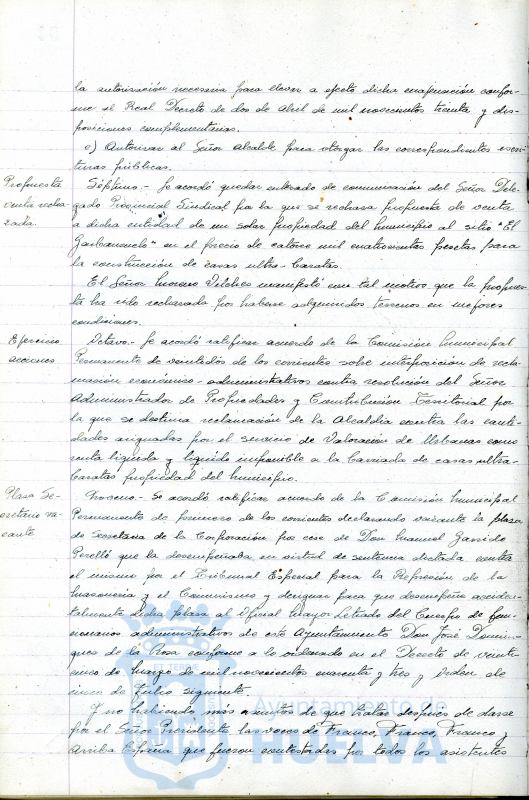 la autorización necesaria para llevar a efecto dicha enajenación confor-
me al Real Decreto de dos de Abril de mil novecientos treinta y dis-
posiciones complementarias.
c) Autorizar al Señor Alcalde para otorgar las correspondientes escri-
turas públicas.
Propuesta
venta recha-
zada.
Séptimo.- Se acordó quedar enterado de comunicación del Señor Dele-
gado Provincial Sindical por la que se rechaza propuesta de venta
a dicha entidad de un solar propiedad del municipio al sitio "El
Garbanzuelo" en el precio de catorce mil cuatrocientas pesetas para
la construcción de casas ultra-baratas.
El Señor Moreno Vilches manifestó con tal motivo que la propues-
ta ha sido rechazada por haberse adquirido terrenos en mejores
condiciones.
Ejercicio
acciones
Octavo.- Se acordó ratificar acuerdo de la Comisión Municipal
Permanente de veintidós de los corrientes sobre interposición de recla-
mación económico-administrativa contra resolución del Señor
Administrador de Propiedades y Contribución Territorial por
la que se destima reclamación de la Alcaldía contra las canti-
dades asignadas por el servicio de Valoración de Urbanas como
renta líquida y líquido imponible a la barriada de casas ultra-
baratas propiedad del municipio.
Plaza Se-
cretario va-
cante
Noveno.- Se acordó ratificar acuerdo de la Comisión Municipal
Permanente de primero de los corrientes declarando vacante la plaza
de Secretario de la Corporación por cese de Don Manuel Garrido
Perelló que la desempeñaba, en virtud de sentencia dictada contra
el mismo por el Tribunal Especial para la Represión de la
Masonería y el Comunismo y designar para que desempeñe acciden-
talmente dicha plaza al Oficial Mayor Letrado del Cuerpo de fun-
cionarios administrativos de este Ayuntamiento Don José Domín-
guez de la Rosa conforme a lo ordenado en el Decreto de veinti-
cinco de Marzo de mil novecientos cuarenta y tres y Orden de
cinco de Julio siguiente.
Y no habiendo más asuntos de que tratar después de darse
por el Señor Presidente las voces de Franco, Franco, Franco y
Arriba España que fueron contestadas por todos los asistentes
Ayuntamiento de
HUELVA